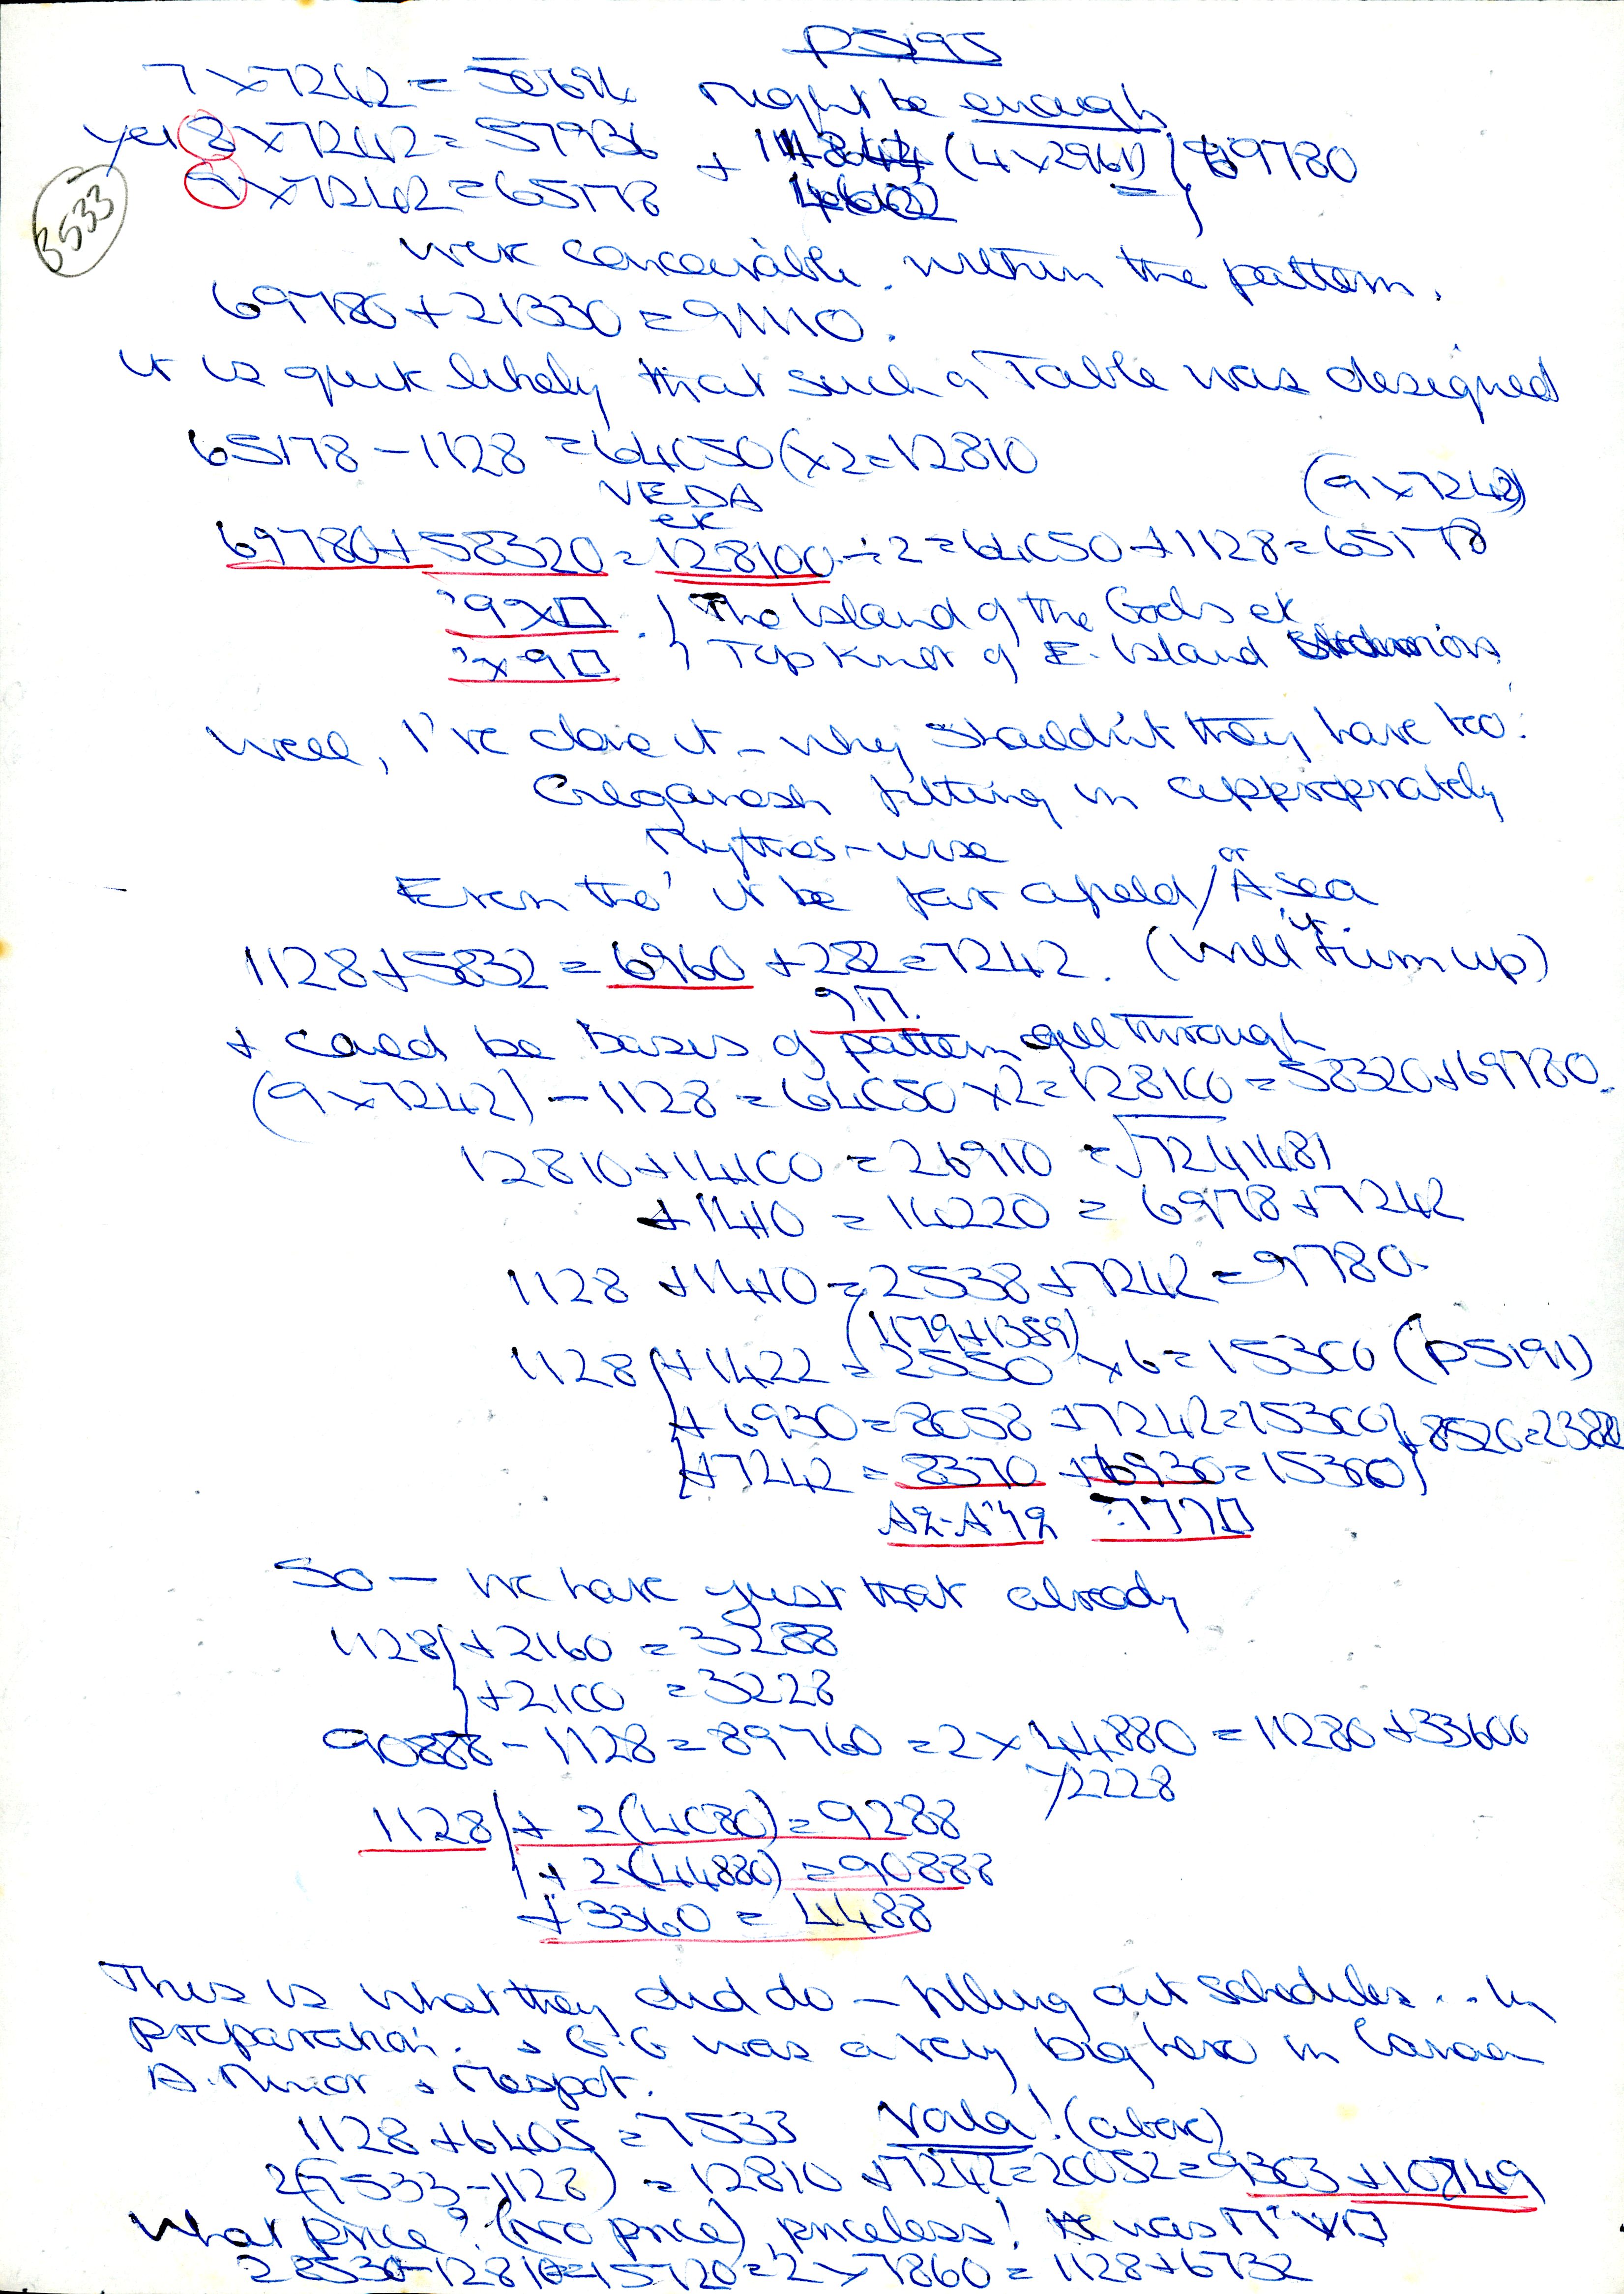 P5195
7 x 7242 = 50694 might be enough
yes 8 x 7242 = 57936 + 11844 (4 x 2961) 69780
9 x 7242 = 65178
3533
were conceivable within the pattern.
69780 + 21330 = 91110.
it is quite likely that such a Table was designed
65178 - 1128 = 64050 (x 2 = 12810
(9 x 7242)
VEDA
ek
69780 + 58320 = 128100 ÷ 2 = 64050 + 1128 = 65178
The Island of the Gods ek
Top Knot of E. Island
Well, I've done it - why shouldn't they have too.
fitting in appropriately
Mythos-wise
or
Even tho' it be far afield / A sea
1128 + 5832 = 6960 + 282 = 7242. (Will turn up)
+ could be basis of pattern all through
(9 x 7242) - 1128 = 64050 x 2 = 128100 = 58320 + 69780.
12810 + 14100 = 26910 = √7241481
+ 1410 = 14220 = 6978 + 7242
1128 + 1410 = 2538 + 7242 = 9780.
(1179 + 1359)
1128 + 1422 = 2550 x 6 = 15300 (P5191)
+ 6930 = 8058 + 7242 = 15300
+ 7242 = 8370 + 6930 = 15300
So - we have just that already
1128 + 2160 = 3288
+ 2100 = 3228
90888 - 1128 = 89760 = 2 x 44880 = 11280 + 33600
72228
1128 + 2(4080) = 9288
+ 2(44880) = 90888
+ 3360 = 4488
This is what they did do - filling out schedules .. in
preparation. & G.G was a very big hero in Canaan
A. Minor & Mesopot.
1128 + 6405 = 7533 Voila! (above)
2(7533 - 1128) = 12810 + 7242 = 20052 = 9303 + 10749
What price? (No price) priceless! was
28530 - 12810 = 15720 = 2 x 7860 = 1128 + 6732